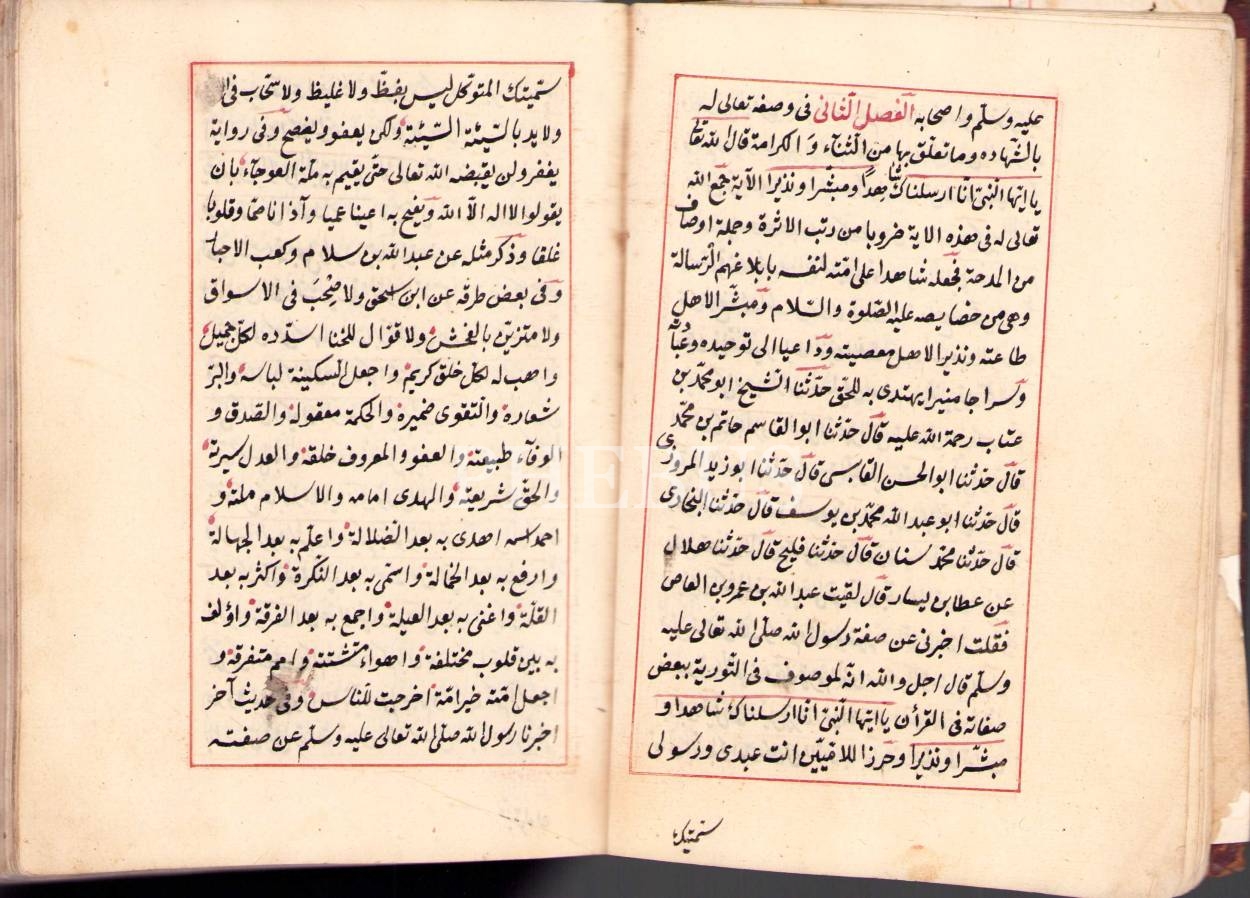 عليه وسلم واصحابه الفصل الثانى فى وصفه تعالى له
بالشهاده وما تعلق بها من الثناء و الكرامة قال الله تعالى
يا ايها النبى انا ارسلناك شاهدا ومبشرا ونذيرا الآية جمع الله
تعالى له فى هذه الاية ضروبا من رتب الاثرة وجملة اوصاف
من المدحة فجعله شاهدا على امته لنفسه بابلاغهم الرسالة
وهى من خصايصه عليه الصلوة والسلام ومبشرا لاهل
طاعته ونذيرا لاهل معصيته وداعيا الى توحيده
وسراجا منيرا يهتدى به للحق حدثنا الشيخ ابو محمد بن
عتاب رحمة الله عليه قال حدثنا ابو القاسم حاتم بن محمد
قال حدثنا ابو الحسن القابسى قال حدثنا ابو زيد المروزى
قال حدثنا ابو عبد الله محمد بن يوسف قال حدثنا البخارى
قال حدثنا محمد سنان قال حدثنا فليح قال حدثنا هلال
عن عطا بن يسار قال لقيت عبد الله بن عمرو بن العاص
فقلت اخبرنى عن صفة رسول الله صلى الله تعالى عليه
وسلم قال اجل والله انه لموصوف فى التورية ببعض
صفاته فى القرأن يا ايها النبى انا ارسلناك شاهدا و
مبشرا ونذيرا وحرزا للاميين انت عبدى ورسولى
سميتك
سميتك المتوكل ليس بفظ ولا غليظ ولا سخاب فى
ولا يد بالسيئة السيئة ولكن يعفو ويفصح وفى رواية
يغفر ولن يقبضه الله تعالى حتى يقيم به ملة العوجآء بان
يقولوا لا اله الا الله ويفتح به اعينا عميا وآذانا صما وقلوبا
غلفا وذكر مثله عن عبد الله بن سلام وكعب الاحبار
وفى بعض طرقه عن ابن اسحق ولا صخب فى الاسواق
ولا متزين بالفحش ولا قوال للخنا اسدده لكل جميل
واهب له لكل خلق كريم واجعل السكينة لباسه والبر
شعاره والتقوى ضميره والحكمة معقوله والصدق و
الوفآء طبيعته والعفو والمعروف خلقه والعدل سيرته
والحق شريعته والهدى امامه والاسلام ملته و
احمد اسمه اهدى به بعد الضلالة واعلم به بعد الجهالة
وارفع به بعد الخمالة واسمى به بعد النكرة واكثر به بعد
القلة واغنى به بعد العيلة واجمع به بعد الفرقة واؤلف
به بين قلوب مختلفة واهواء متشتتة وامم متفرقة و
اجعل امته خير امة اخرجت للناس وفى حديث آخر
اخبرنا رسول الله صلى الله تعالى عليه وسلم عن صفته